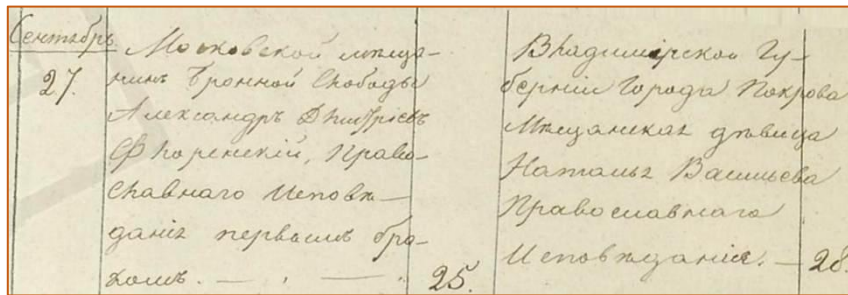 Сентябрь
27.
Московской мѣща-
нинъ Бронной Слободы
Александръ Дмитріевъ
Флоренскій, Право-
славнаго Исповѣ-
данія первымъ бра-
комъ.
25.
Владимірской Гу-
берніи Города Покрова
Мѣщанская дѣвица
Наталья Васильева
Православнаго
Исповѣданія.
28.